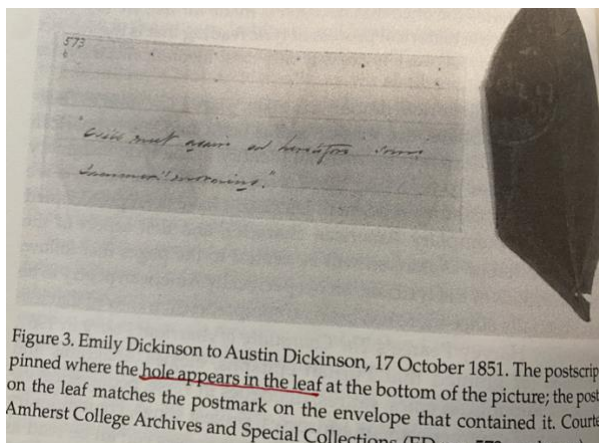 573
6
"will meet again as heretofore some
summer's morning."
Figure 3. Emily Dickinson to Austin Dickinson, 17 October 1851. The postscrip
pinned where the hole appears in the leaf at the bottom of the picture; the post
on the leaf matches the postmark on the envelope that contained it. Courte
Amherst College Archives and Special Collections (ED